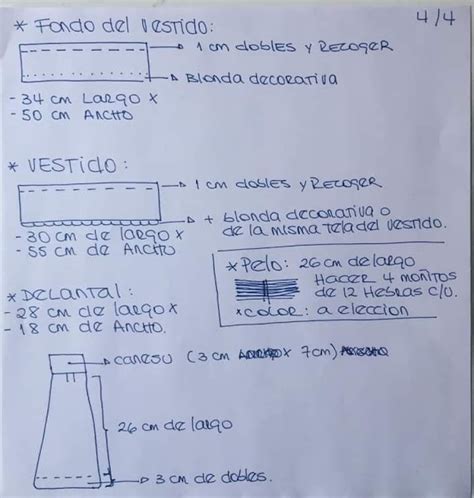 * Fondo del vestido:
4/4
1 cm dobles y Recoger
Blonda decorativa
- 34 cm Largo x
- 50 cm Ancho
* VESTIdO:
1 cm dobles y Recoger
+ blonda decorativa o
de la misma tela del vestido.
- 30 cm de largo x
- 55 cm de Ancho
* Pelo: 26 cm de largo
Hacer 4 moñitos
de 12 Hebras c/u.
* color: a eleccion
* Delantal:
- 28 cm de largo x
- 18 cm de Ancho.
canesu (3 cm x 7cm)
26 cm de largo
3 cm de dobles.